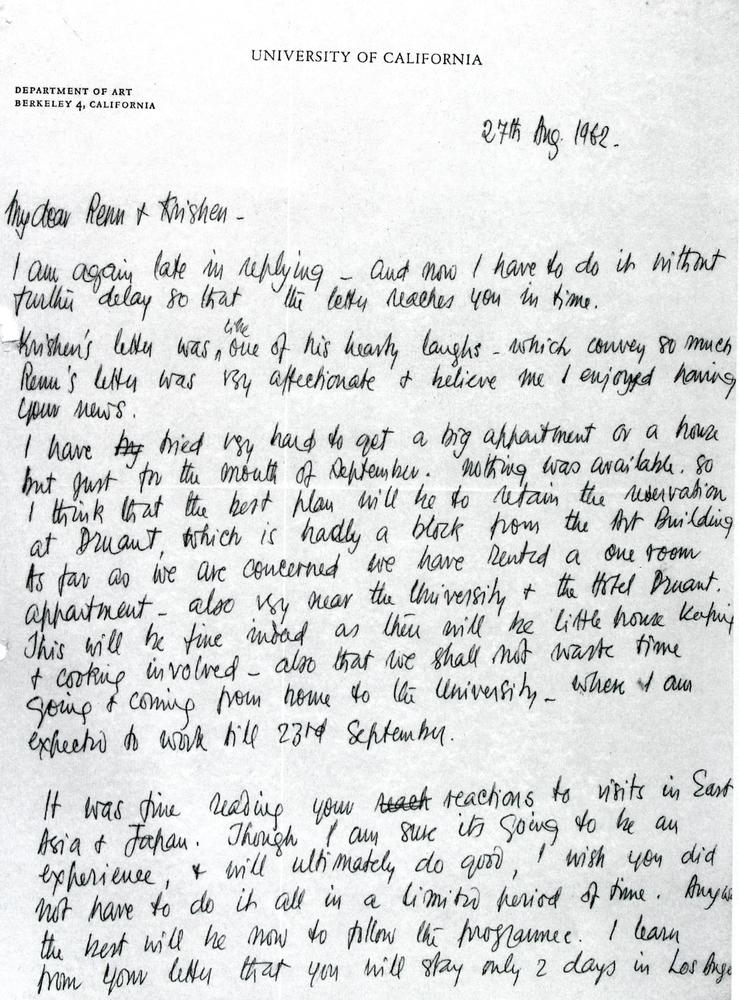 UNIVERSITY OF CALIFORNIA
DEPARTMENT OF ART
BERKELEY 4, CALIFORNIA
27th Aug. 1962.
My dear Renu & Krishen -
I am again late in replying - and now I have to do it without
further delay so that the letter reaches you in time.
Krishen's letter was, like one of his hearty laughs - which convey so much
Renu's letter was very affectionate & believe me I enjoyed having
your news.
I have try tried very hard to get a big appartment or a house
but just for the month of September. nothing was available. so
I think that the best plan will be to retain the reservation
at Druant, which is hadly a block from the Art Building
As far as we are concerned we have rented a one room
appartment - also very near the University & the Hotel Druant.
This will be fine indeed as there will be little house keeping
& cooking involved - also that we shall not waste time
going & coming from home to the University - where I am
expected to work till 23rd September.
It was fine reading your reach reactions to visits in East
Asia & Japan. Though I am sure its going to be an
experience, & will ultimately do good, I wish you did
not have to do it all in a limited period of time. Anyw
the best will be now to follow the programme. I learn
from your letter that you will stay only 2 days in Los Ange